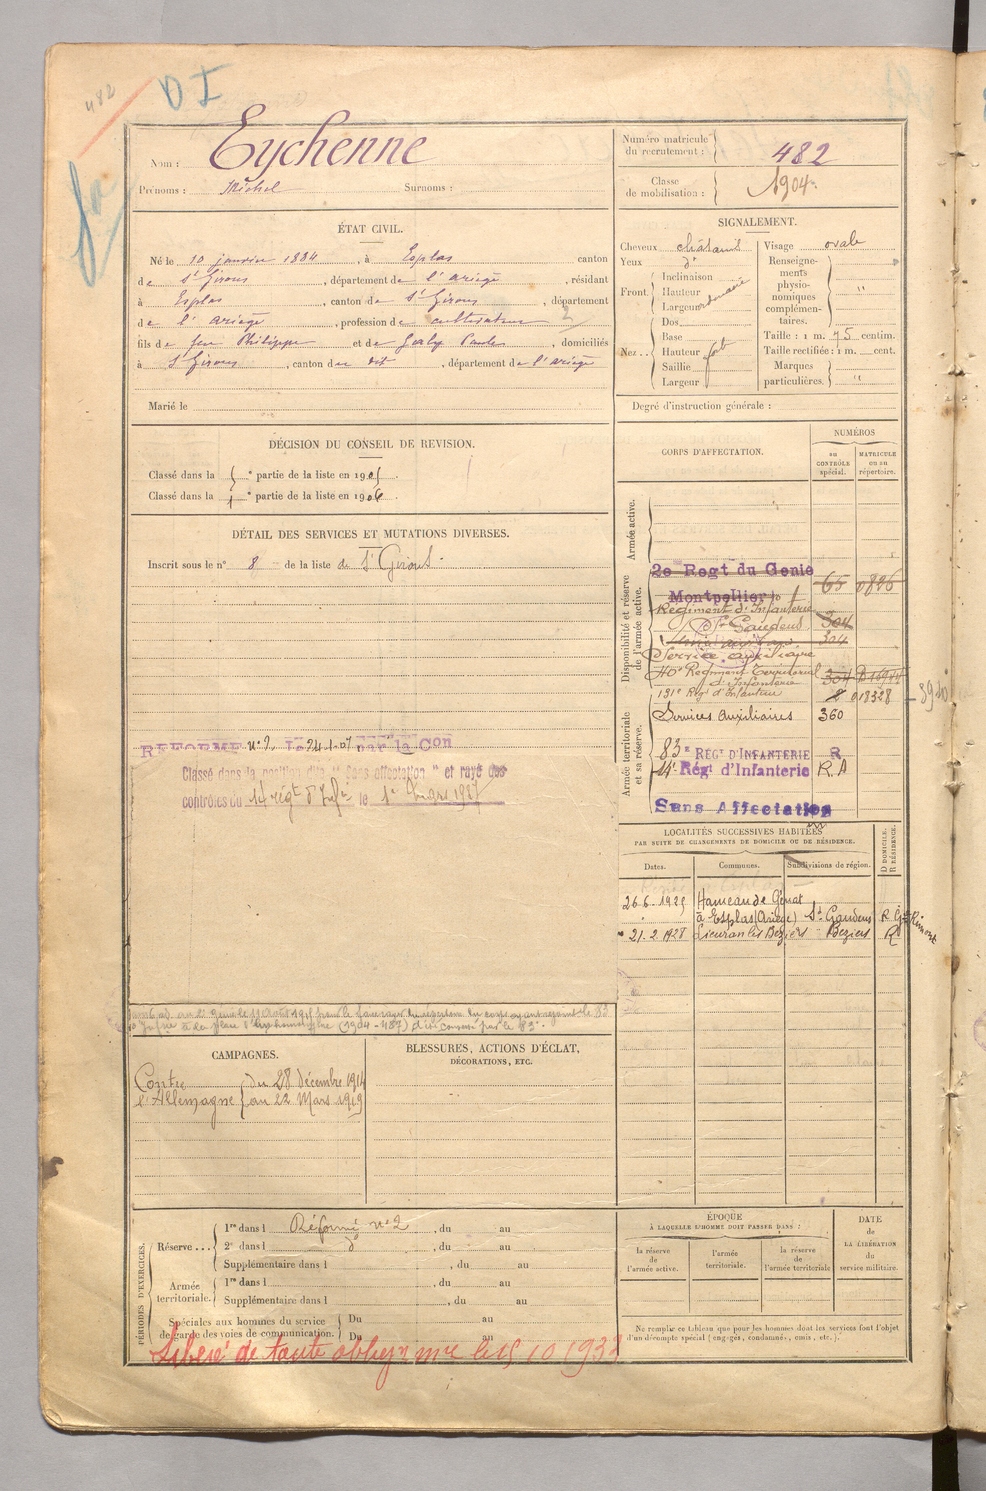 482
D I
Nom : Eychenne
Prénoms : Michel Surnoms :
Numéro matricule du recrutement : 482
Classe de mobilisation : 1904
ÉTAT CIVIL.
Né le 10 janvier 1884, à Esplas canton
de St Girons, département de l'ariège, résidant
à Esplas, canton de St Girons, département
de l'ariège, profession de cultivateur
fils de feu Philippe et de Galy Paule, domiciliés
à St Girons, canton du dit, département de l'ariège
Marié le
SIGNALEMENT.
Cheveux chatains
Yeux do
Front. Inclinaison
Hauteur
Largeur ordinaire
Nez. Dos
Base
Hauteur fort
Saillie
Largeur
Visage ovale
Renseignements physionomiques complémentaires. "
Taille : 1 m. 75 centim.
Taille rectifiée : 1 m. cent.
Marques particulières. "
Degré d'instruction générale :
DÉCISION DU CONSEIL DE REVISION.
Classé dans la 5e partie de la liste en 1905
Classé dans la 1e partie de la liste en 1906
DÉTAIL DES SERVICES ET MUTATIONS DIVERSES.
Inscrit sous le no 8 de la liste de St Girons
REFORME no 2 Le 24-1-07 par la Con
Classé dans la position dite " Sans affectation " et rayé des
contrôles du 14 régt d'Infie le 1er Mars 1927
CORPS D'AFFECTATION.
NUMÉROS
au CONTRÔLE spécial.
MATRICULE ou au répertoire.
Armée active.
Disponibilité et réserve de l'armée active.
2e Regt du Genie 65 0826
Montpellier
Régiment d'Infanterie
St Gaudens 304
304
Service auxiliaire
40e Régiment Territorial
d'Infanterie 304
131e Régt d'Infanterie 2 018328
Armée territoriale et sa réserve.
Services Auxiliaires 360
83e RÉGt D'INFANTERIE R
14e Régt d'Infanterie R.A
Sans Affectation
LOCALITÉS SUCCESSIVES HABITÉES
PAR SUITE DE CHANGEMENTS DE DOMICILE OU DE RÉSIDENCE.
Dates. Communes. Subdivisions de région. D DOMICILE. R RÉSIDENCE.
26-6-1925 Hameau de Génat
à Esplas (Ariège) St Gaudens R
21-2-1928 Lieuran les Béziers Béziers R
CAMPAGNES.
Contre l'Allemagne du 28 Décembre 1914
au 22 Mars 1919
BLESSURES, ACTIONS D'ÉCLAT,
DÉCORATIONS, ETC.
PÉRIODES D'EXERCICES.
Réserve ... 1re dans l Réformé no 2, du au
2e dans l do, du au
Supplémentaire dans l, du au
Armée territoriale. 1re dans l, du au
Supplémentaire dans l, du au
Spéciales aux hommes du service de garde des voies de communication. Du au
Du au
Libéré de toute obligon mre le 15 10 1933
ÉPOQUE
À LAQUELLE L'HOMME DOIT PASSER DANS :
la réserve de l'armée active.
l'armée territoriale.
la réserve de l'armée territoriale
DATE de LA LIBÉRATION du service militaire.
Ne remplir ce tableau que pour les hommes dont les services font l'objet
d'un décompte spécial (engagés, condamnés, omis, etc.).